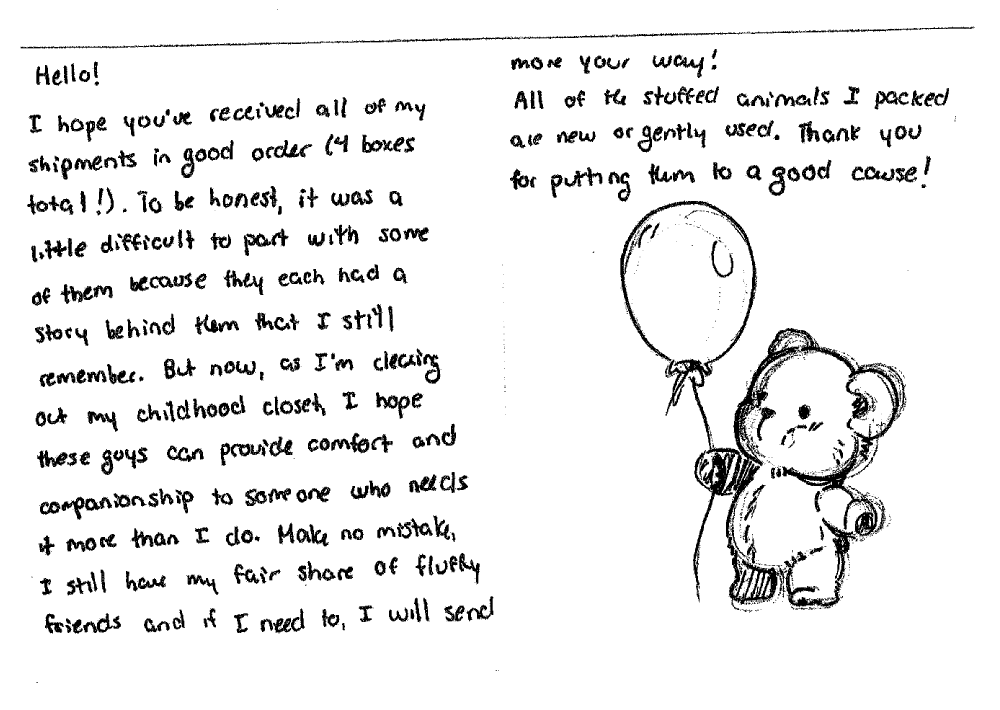 Hello!
I hope you've received all of my
shipments in good order (4 boxes
total!). To be honest, it was a
little difficult to part with some
of them because they each had a
story behind them that I still
remember. But now, as I'm clearing
out my childhood closet, I hope
these guys can provide comfort and
companionship to someone who needs
it more than I do. Make no mistake,
I still have my fair share of fluffy
friends and if I need to, I will send
more your way!
All of the stuffed animals I packed
are new or gently used. Thank you
for putting them to a good cause!